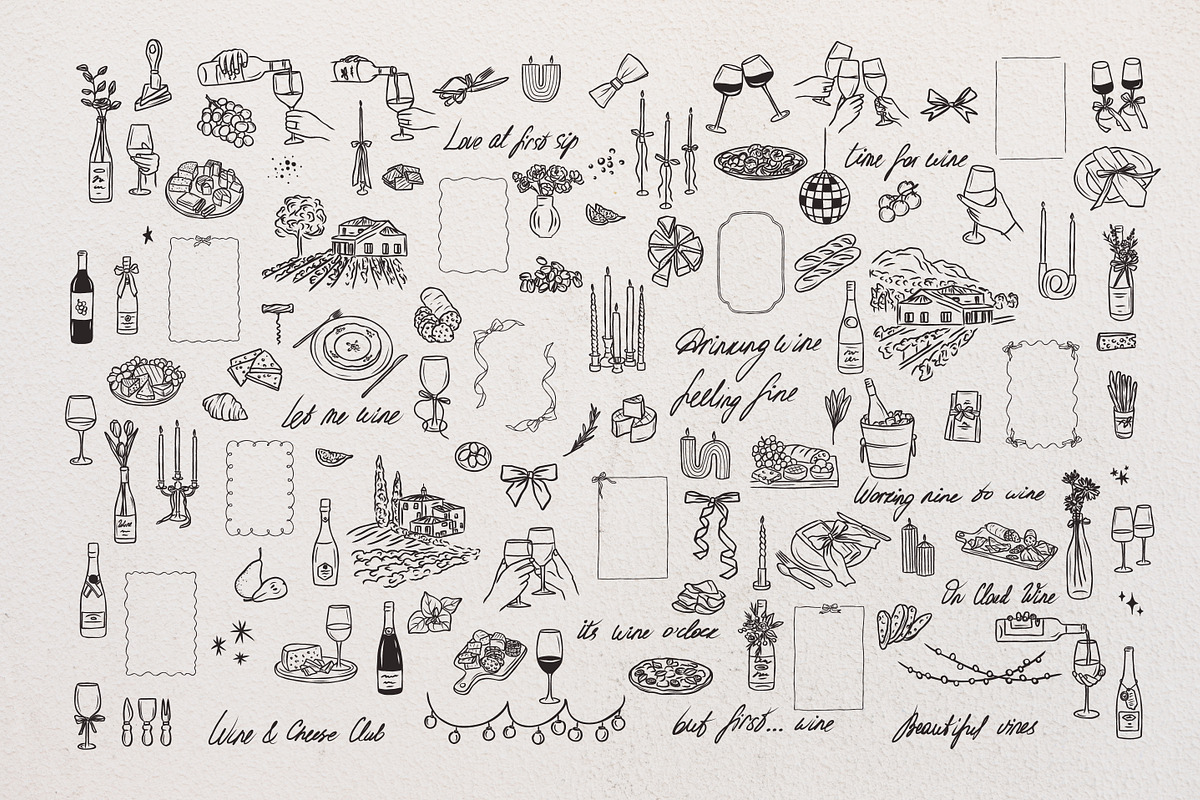 Love at first sip
time for wine
Drinking wine
feeling fine
let me wine
Working nine to wine
Wine
On Cloud Wine
its wine o'clock
Wine & Cheese Club
but first... wine
Beautiful vines